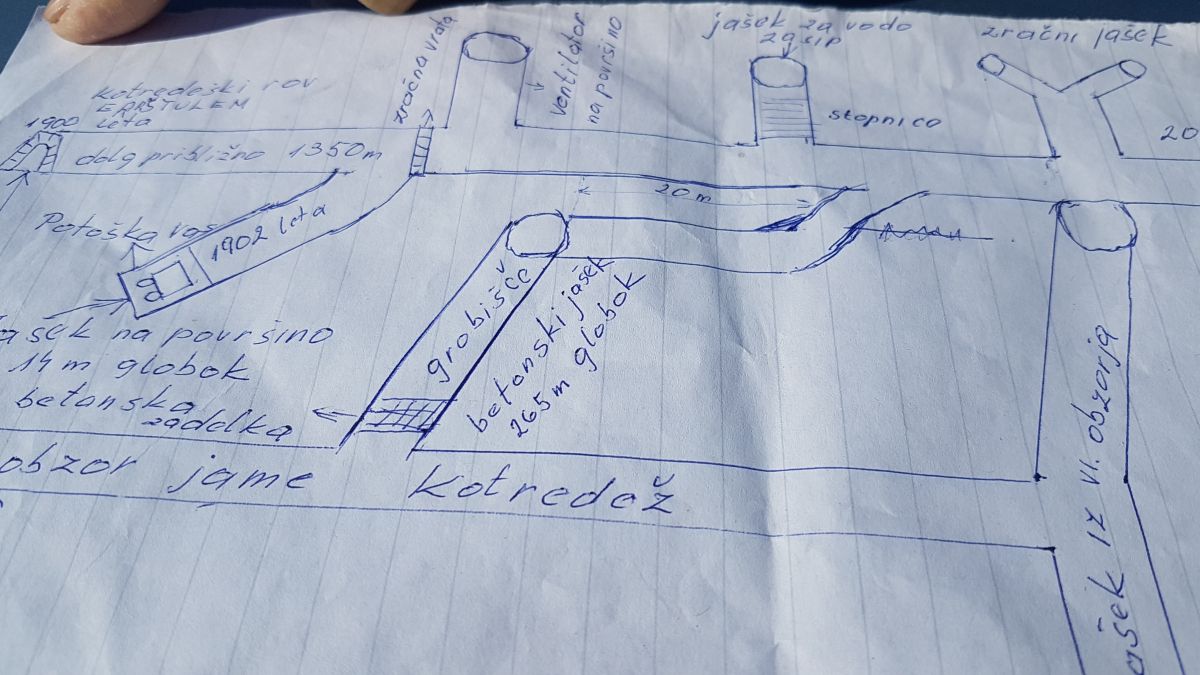 zračna vrata
ventilator
na površino
jašek za vodo
zasip
zračni jašek
Kotredeški rov
1900
leta
dolg približno 1350 m
stopnice
20
20 m
Potoška vas
1902 leta
jašek na površino
14 m globok
betonska
zadelka
grobišče
betonski jašek
265 m globok
obzor jame Kotredež
jašek iz VI. obzorja